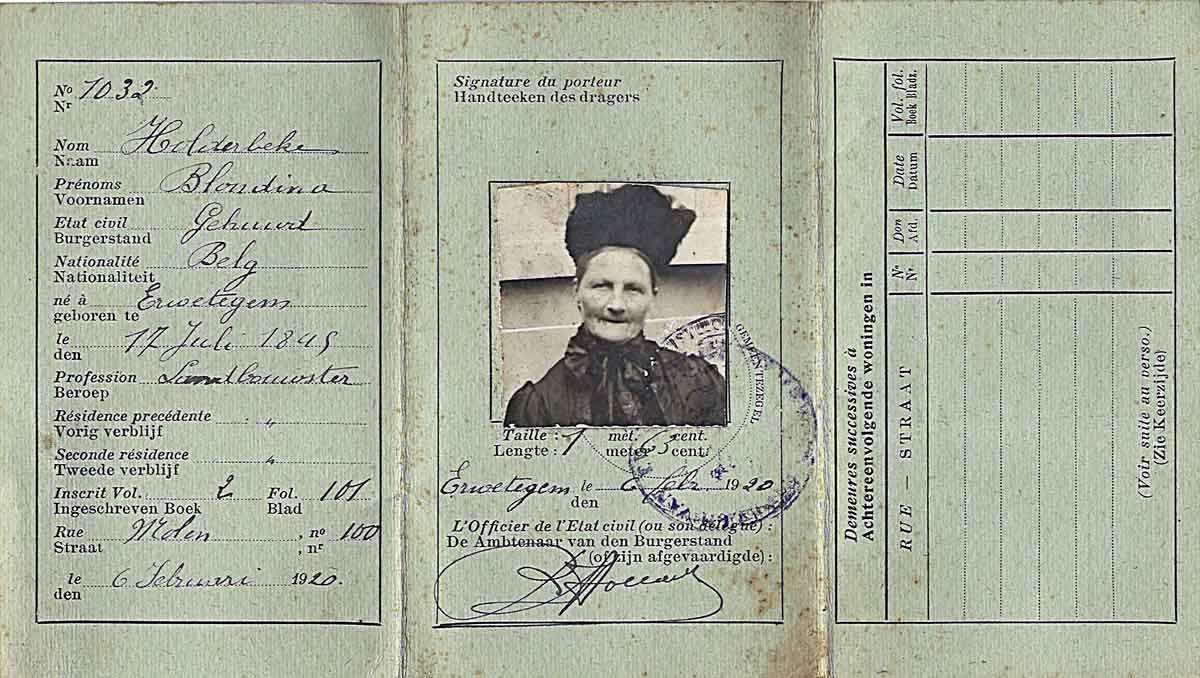 Nº 1032
Nr
Nom Holderbeke
Naam
Prénoms Blondina
Voornamen
Etat civil Gehuwd
Burgerstand
Nationalité Belg
Nationaliteit
né à Erwetegem
geboren te
le 17 Juli
den
Profession Landbouwster
Beroep
Résidence precédente "
Vorig verblijf
Seconde résidence "
Tweede verblijf
Inscrit Vol. 2 Fol. 101
Ingeschreven Boek Blad
Rue Molen, nº 100
Straat, nr
le 6 Februari 1920.
den
Signature du porteur
Handteeken des dragers
GEMEENTEZEGEL
Taille : 1 mèt. 63 cent.
Lengte : meter cent.
Erwetegem le 6 Febr. 1920
den
L'Officier de l'Etat civil (ou son délégué) :
De Ambtenaar van den Burgerstand
(of zijn afgevaardigde) :
Demeures successives à
Achtereenvolgende woningen in
RUE – STRAAT
Nº
Nr
Don
Afd.
Date
Datum
Vol. fol.
Boek Bladz.
(Voir suite au verso.)
(Zie Keerzijde)